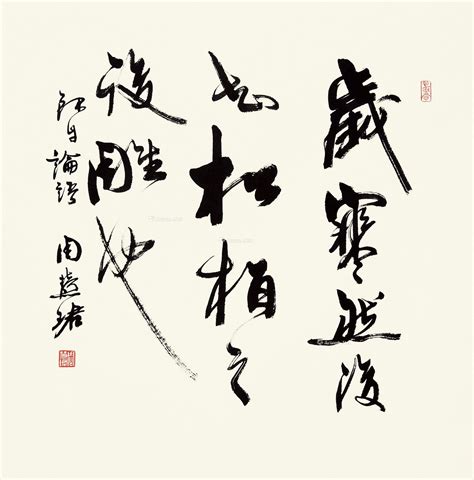 歲寒然後
知松柏之
後雕也
録自論語 周慧珺